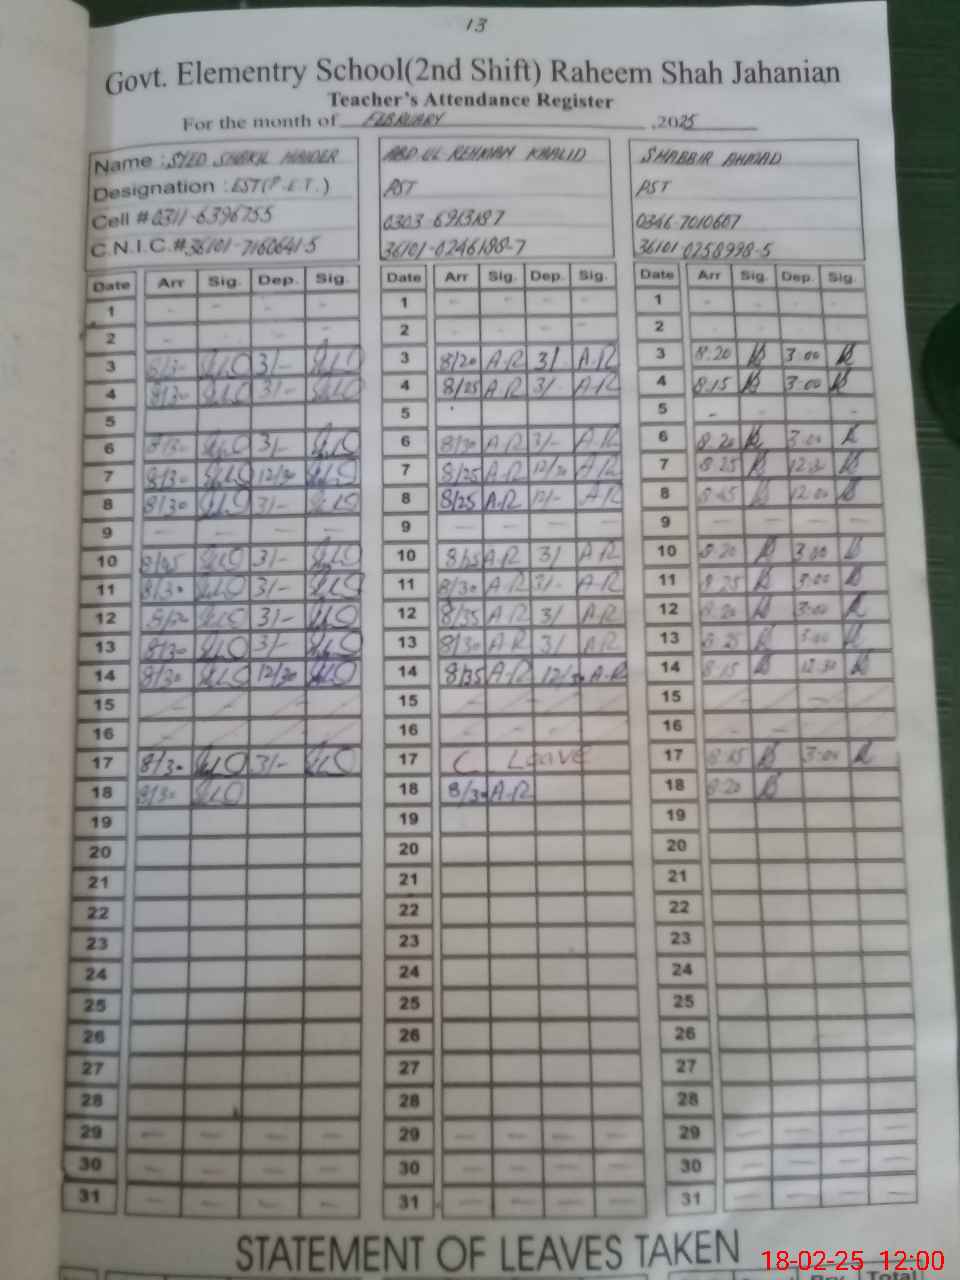 13
Govt. Elementry School(2nd Shift) Raheem Shah Jahanian
Teacher's Attendance Register
For the month of FEBRUARY ,2025
Name : SYED SHAKIL HAIDER ABD UL REHMAN KHALID SHABBIR AHMAD
Designation : EST(P.E.T.) PST PST
Cell # 0311-6396755 0303 6913187 0346 7010607
C.N.I.C.# 36101-7160641-5 36101-0246188-7 36101 0258998-5
Date Arr Sig. Dep. Sig. Date Arr Sig. Dep. Sig. Date Arr Sig. Dep. Sig.
1 - - - - 1 - - - - 1 - - - -
2 - - - - 2 - - - - 2 - - - -
3 8/30 3/- 3 8/20 A.R 3/. A.R 3 8.20 3.00
4 8/30 3/- 4 8/25 A.R 3/. A.R 4 8.15 3.00
5 5 5 - - - -
6 8/30 3/- 6 8/30 A.R 3/- A.R 6 8.20 3.00
7 8/30 12/30 7 8/25 A.R 12/30 A.R 7 8.25 12.30
8 8/30 3/- 8 8/25 A.R 12/- A.R 8 12.00
9 - - - - 9 - - - - 9 - - - -
10 3/- 10 A.R 3/ A.R 10 8.20 3.00
11 8/30 3/- 11 8/30 A.R 3/- A.R 11 8.25 3:00
12 3/- 12 8/35 A.R 3/ A.R 12 8.20 3:00
13 8/30 3/- 13 8/30 A.R 3/ A.R 13 8.25 3:00
14 8/30 12/30 14 8/35 A.R 12/30 A.R 14 8.15 12.30
15 - - - - 15 - - - - 15 - - - -
16 - - - - 16 - - - - 16 - - - -
17 8/30 3/- 17 C. Leave 17 3:00
18 8/30 18 8/30 A.R 18 8.20
19 19 19
20 20 20
21 21 21
22 22 22
23 23 23
24 24 24
25 25 25
26 26 26
27 27 27
28 28 28
29 - - - - 29 - - - - 29 - - - -
30 - - - - 30 - - - - 30 - - - -
31 - - - - 31 - - - - 31 - - - -
STATEMENT OF LEAVES TAKEN
18-02-25 12:00